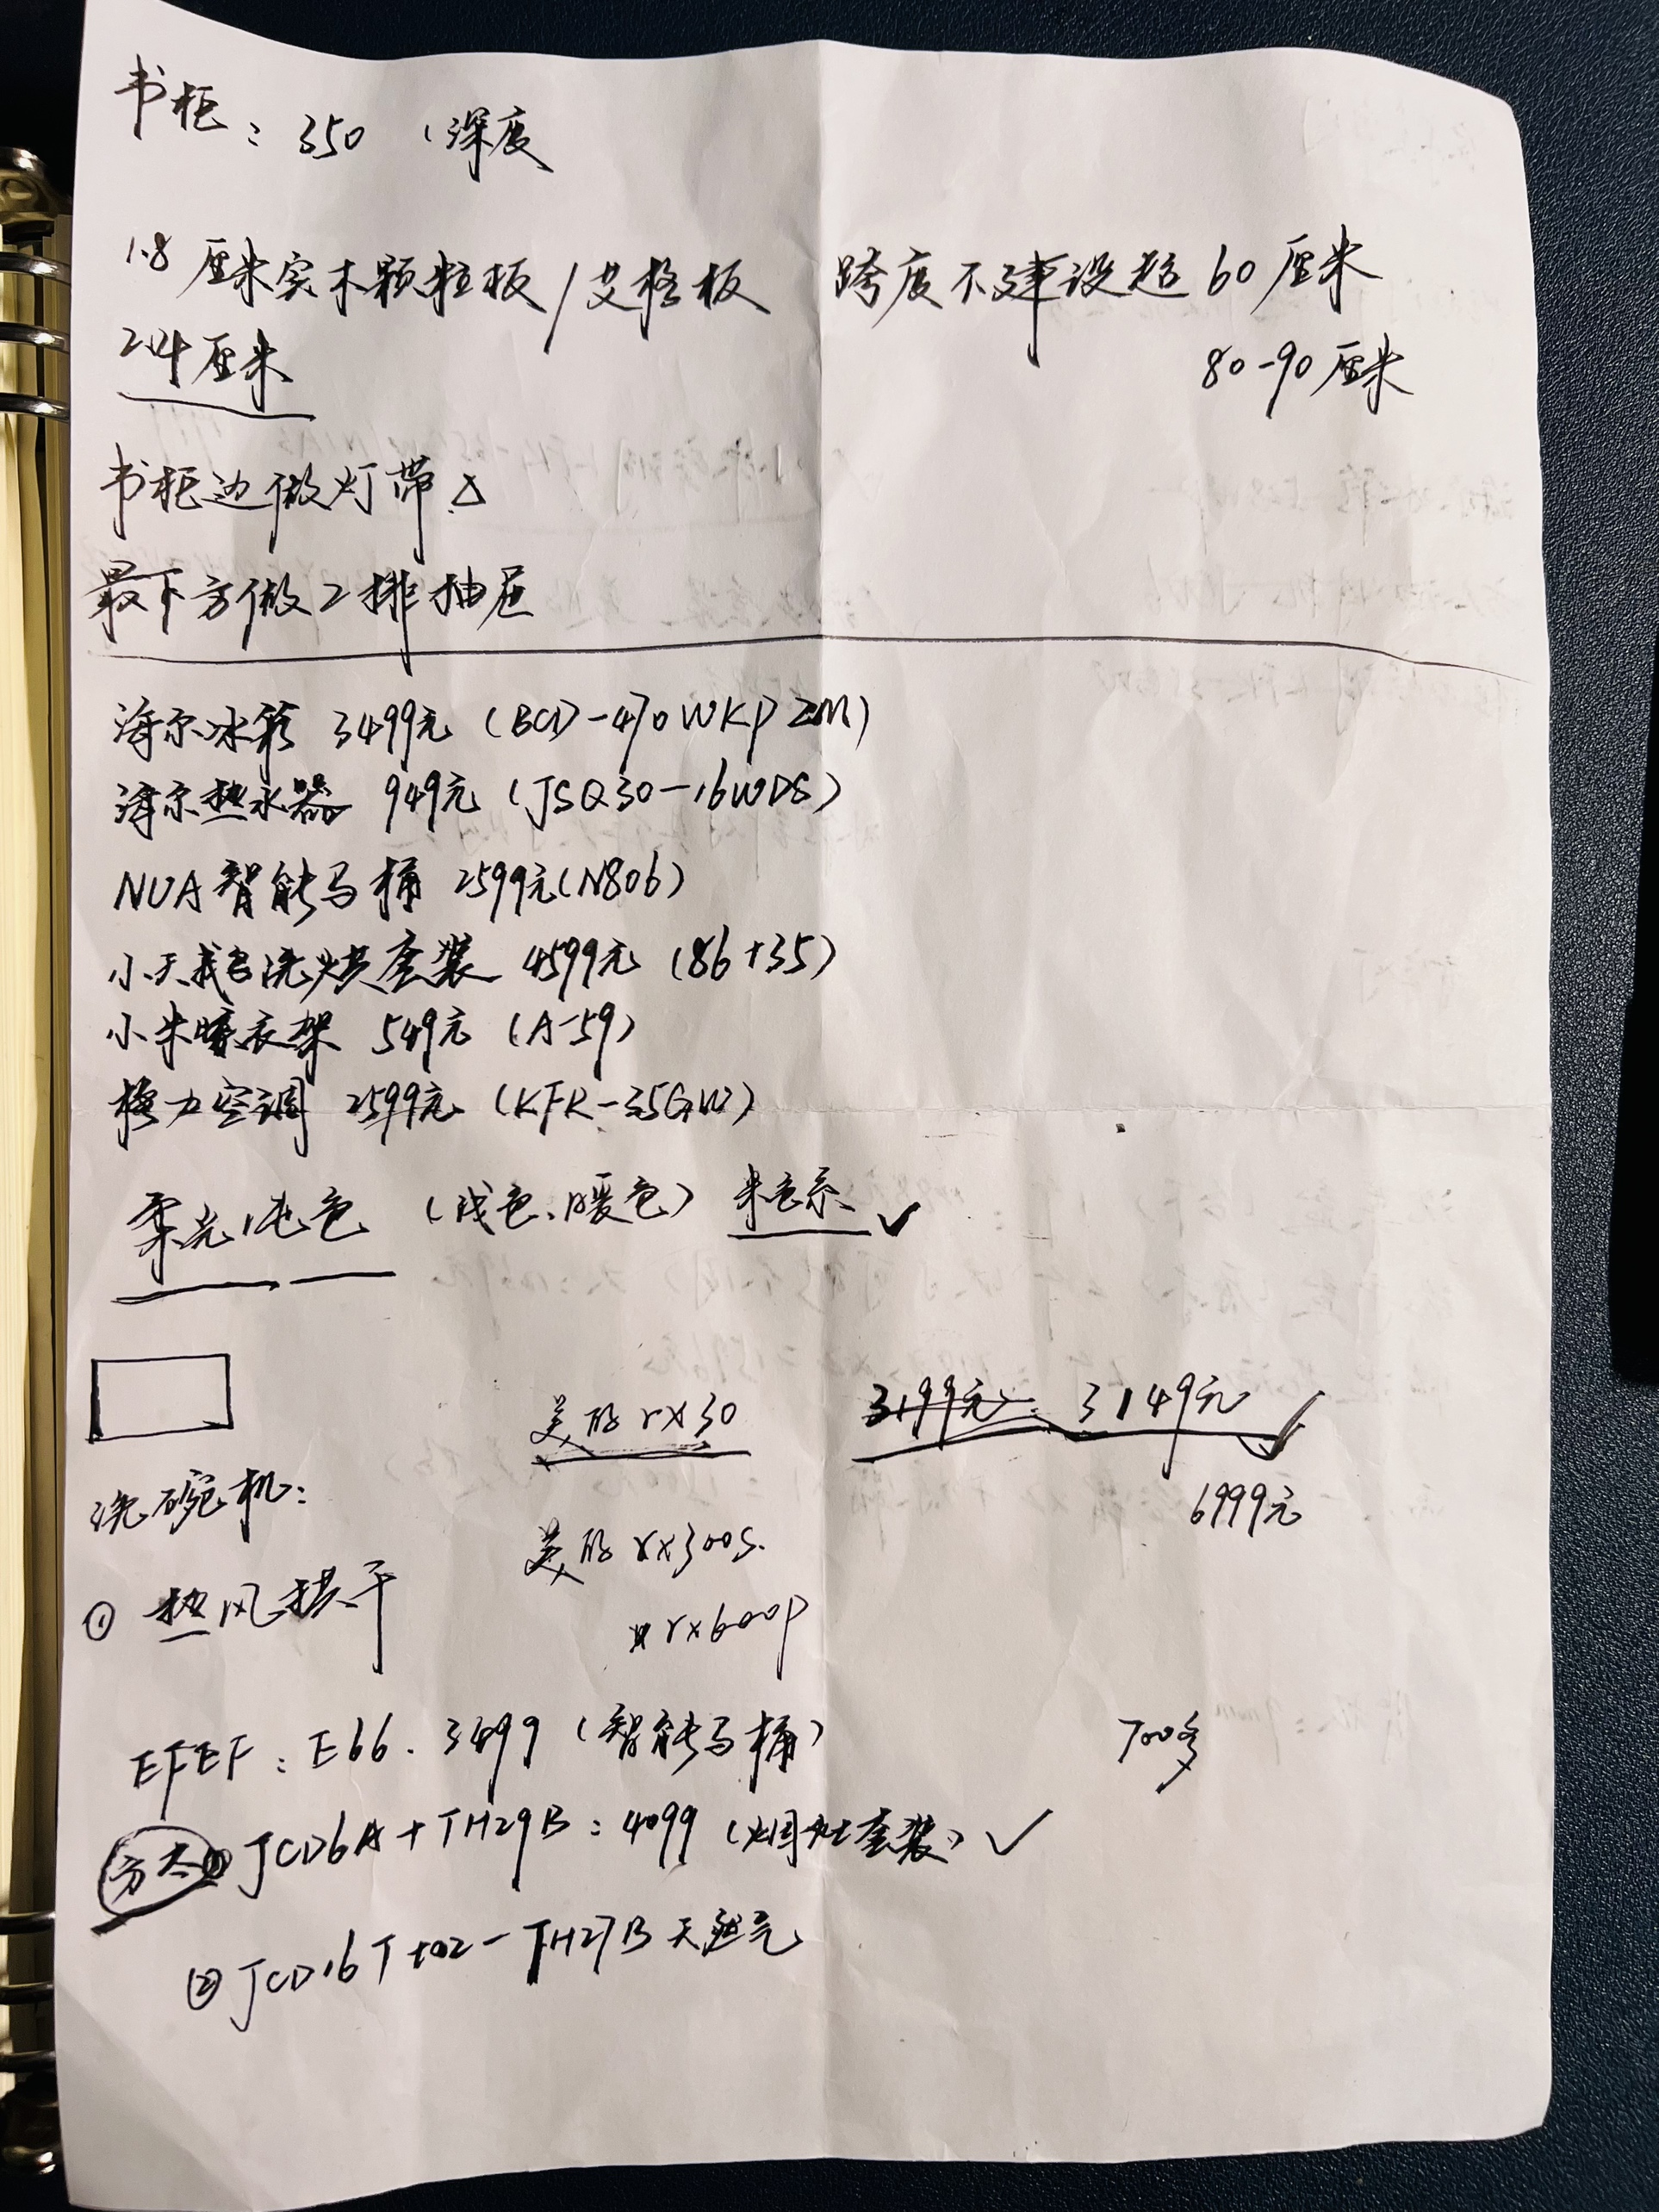 书柜：350（深度
1.8厘米实木颗粒板/艾格板 跨度不建设超60厘米
2.4厘米 80-90厘米
书柜边做灯带
最下方做2排抽屉
海尔冰箱 3499元（BCD-470WKPZM）
海尔热水器 949元（JSQ30-16WDS）
NUA智能马桶 2599元（N806）
小天鹅洗烘套装 4599元（86+35）
小米晾衣架 549元（A-59）
格力空调 2599元（KFR-35GW）
柔光 纯色（浅色、暖色）米色系 ✓
美的rx30 3199元 3149元 ✓
洗碗机： 6999元
美的rx300s.
① 热风烘干
rx600p
EFEF：E66. 3499（智能马桶） 700多
方太① JCD6A+TH29B：4099（烟灶套装）✓
② JCD16T+02-TH27B天然气